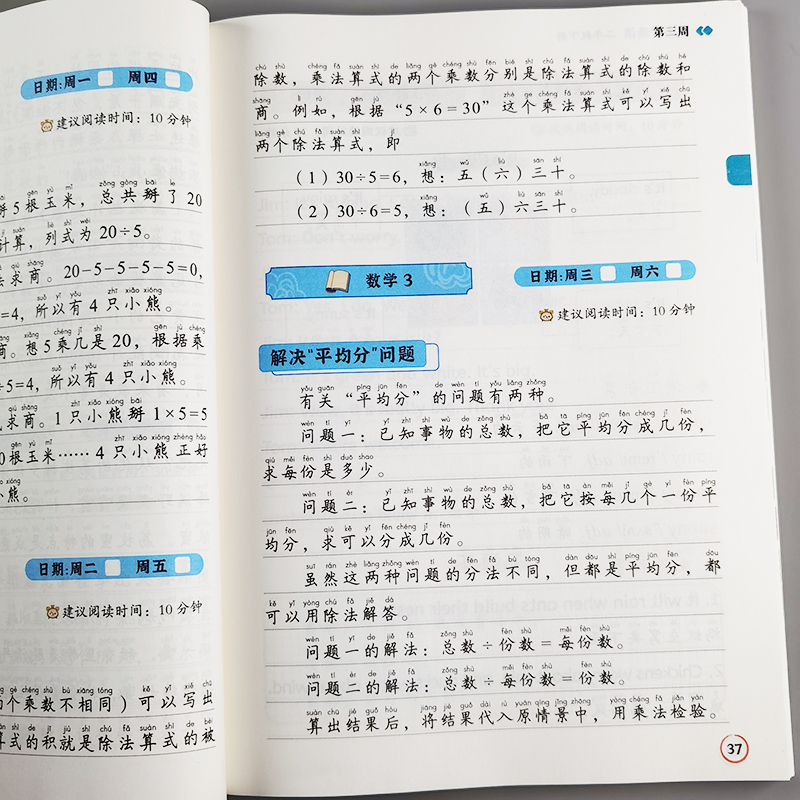 日期:周一 周四
建议阅读时间：10分钟
掰5根玉米，总共掰了20
计算，列式为20÷5。
法求商。20-5-5-5-5=0，
=4，所以有4只小熊。
商。想5乘几是20，根据乘
÷5=4，所以有4只小熊。
求商。1只小熊掰1×5=5
0根玉米……4只小熊正好
小熊。
日期:周二 周五
建议阅读时间：10分钟
两个乘数不相同）可以写出
算式的积就是除法算式的被
第三周
除数，乘法算式的两个乘数分别是除法算式的除数和
商。例如，根据“5×6=30”这个乘法算式可以写出
两个除法算式，即
（1）30÷5=6，想：五（六）三十。
（2）30÷6=5，想：（五）六三十。
数学3
日期:周三 周六
建议阅读时间：10分钟
解决“平均分”问题
有关“平均分”的问题有两种。
问题一：已知事物的总数，把它平均分成几份，
求每份是多少。
问题二：已知事物的总数，把它按每几个一份平
均分，求可以分成几份。
虽然这两种问题的分法不同，但都是平均分，都
可以用除法解答。
问题一的解法：总数÷份数=每份数。
问题二的解法：总数÷每份数=份数。
算出结果后，将结果代入原情景中，用乘法检验。
37